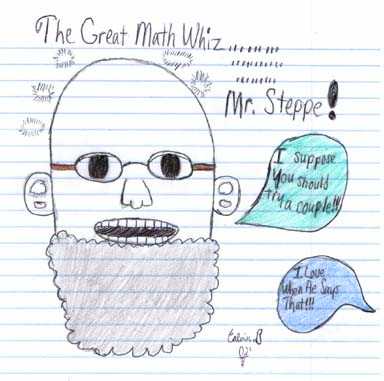 The Great Math Whiz
Mr. Steppe!
I suppose
You should
try a couple!!!
I Love
When He Says
That!!!
Calvin B
02'